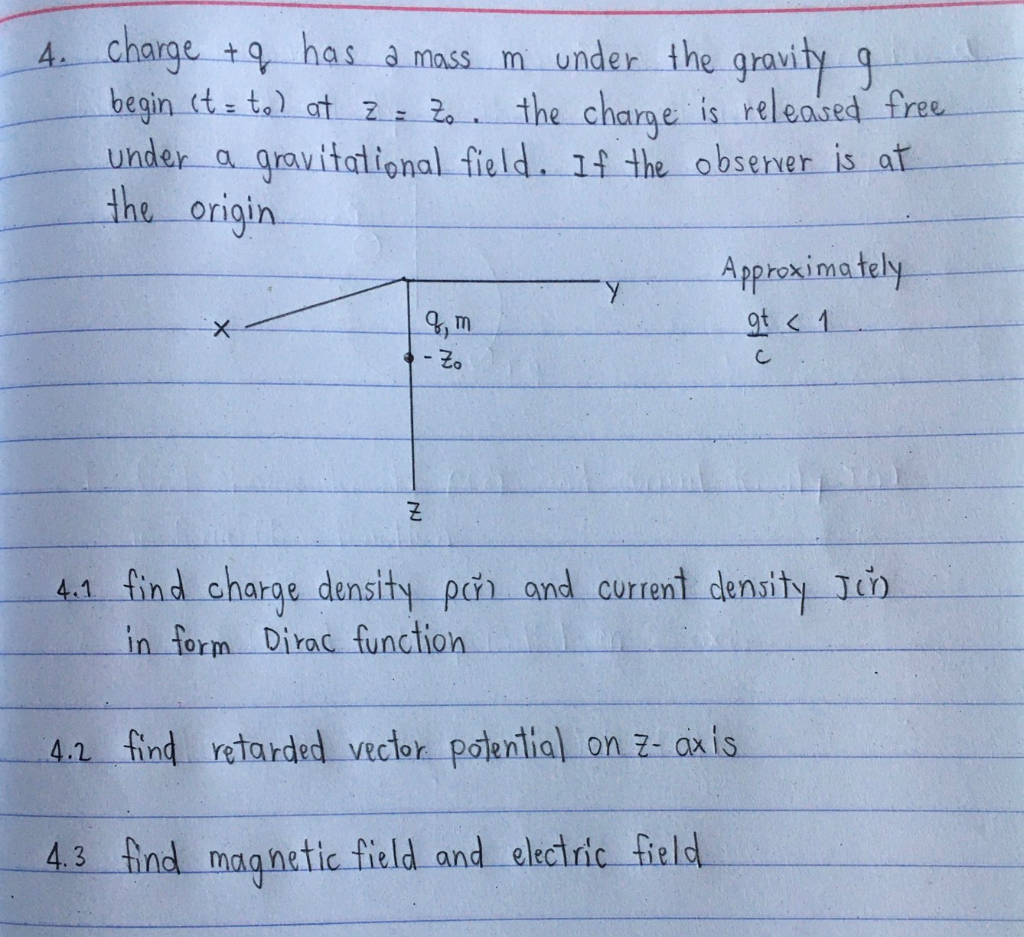 4. charge +q has a mass m under the gravity g
begin (t = t₀) at z = z₀. the charge is released free
under a gravitational field. If the observer is at
the origin
Approximately
y
x
q, m
gt/c < 1
- z₀
z
4.1 find charge density ρ(r⃗) and current density J(r⃗)
in form Dirac function
4.2 find retarded vector potential on z-axis
4.3 find magnetic field and electric field